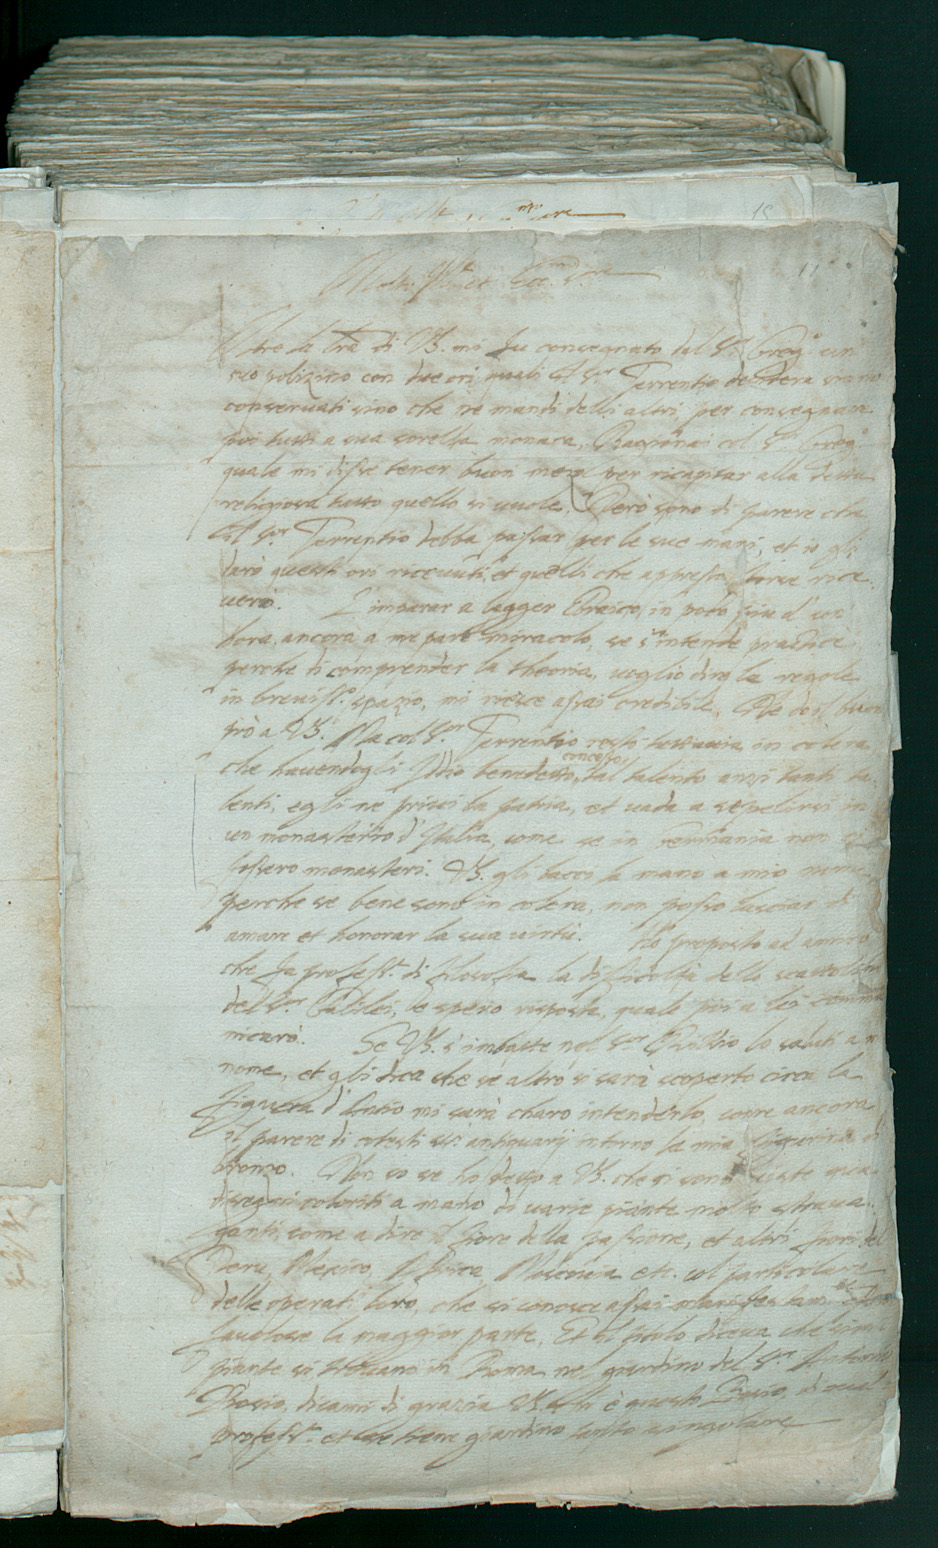 15
11
Molto Ill.re et Ecc.mo S.re
Oltre la l'ra di VS. mi fu consegnato dal S.r Greg.o un
suo polizino con due ori, quali il S.r Terrentio desidera siano
conservati sino che ne mandi delli altri, per consegnare
poi tutti a sua sorella monaca. Ragionai col S.r Greg.o
quale mi disse tener buon mezo per ricapitar alla detta
religiosa tutto quello si vuole. Però sono di parere che
il S.or Terrentio debba passar per le sue mani, et io gli
darò questi ori ricevuti, et quelli che appresso forse rice
verò. L'imparar a legger Ebraico, in poco più d'un
hora, ancora a me pare miracolo, se s'intende practice
perche di comprender la theoria, voglio dire le regole
in breviss.o spazio, mi riesce assai credibile. Il buon
prò a VS. Ma col S.or Terrentio resto tuttavia in colera
che havendogli Iddio benedetto concesso tal talento anzi tanti ta
lenti, egli ne privi la patria, et vada a sepelirsi in
un monasterio d'Italia, come se in Germania non vi
fossero monasteri. VS. gli bacci la mano a mio nome
perche se bene sono in colera, non posso lasciar di
amare et honorar la sua virtù. Ho proposto ad amico
che fa profess.e di filosofia la difficoltà dello
del S.or Galilei, ne spero risposta, quale poi a lei commu
nicarò. Se VS. s'imbatte nel S.or lo saluti a m
nome, et gli dica che se altro si sarà scoperto circa la
figura d' mi sarà charo intenderlo, come ancora
il parere di cotesti SS.ri antiquarij intorno la mia figurina di
bronzo. Non so se ho detto a VS. che si sono viste qua
disegni coloriti a mano di varie piante molto strava
ganti, come a dire il fiore della passione, et altri fiori del
Peru, Mexico, Africa, Moscovia etc. col particolare
delle operati loro, che si conosce assai manifestam.te
favolose la maggior parte. Et il titolo diceva che simi
piante si trovano in Roma nel giardino del S.or Antonio
Bosio, dicami di grazia VS. chi è questo Bosio, di qual
profess.e et se tiene giardino tanto singolare